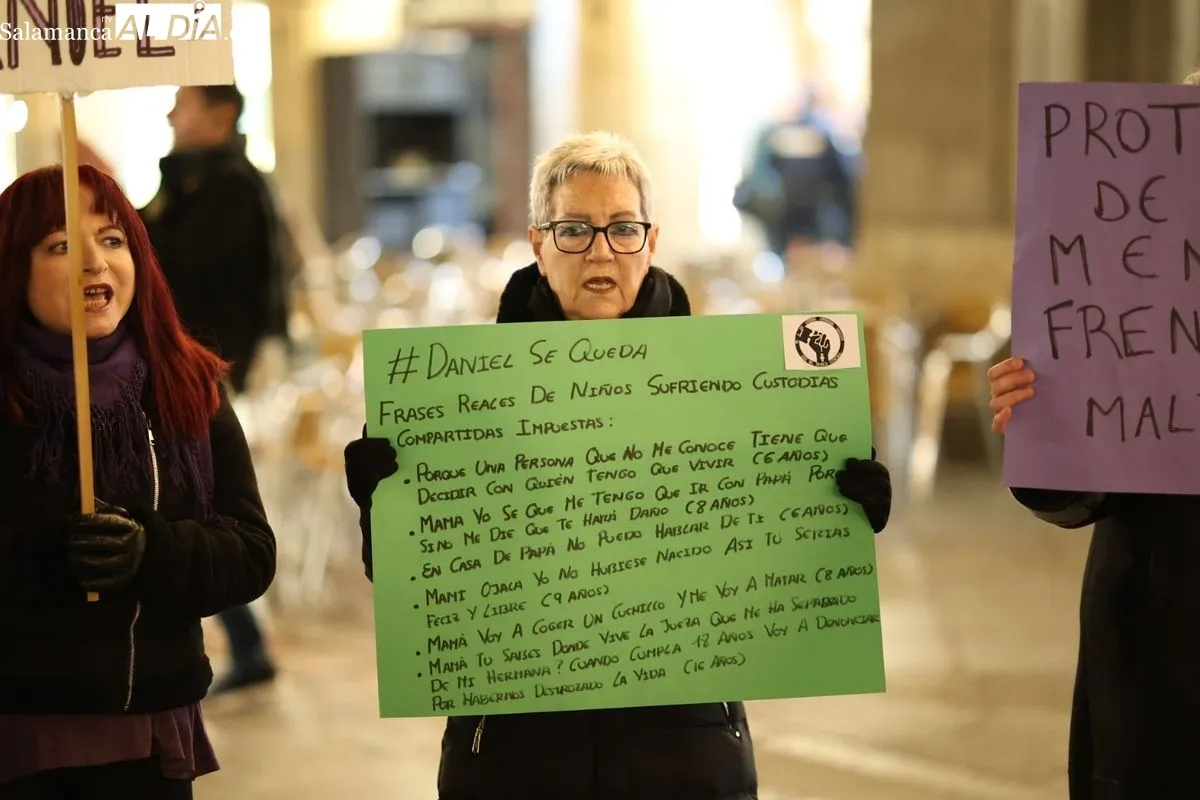 Salamanca rtv AL DÍA
NIEL
# DANIEL SE QUEDA
FRASES REALES DE NIÑOS SUFRIENDO CUSTODIAS
COMPARTIDAS IMPUESTAS:
• PORQUE UNA PERSONA QUE NO ME CONOCE TIENE QUE
DECIDIR CON QUIÉN TENGO QUE VIVIR (6 AÑOS)
• MAMA YO SE QUE ME TENGO QUE IR CON PAPÁ POR
SINO ME DIE QUE TE HARÁ DAÑO (8 AÑOS)
• EN CASA DE PAPÁ NO PUEDO HABLAR DE TI (6 AÑOS)
• MAMI OJALA YO NO HUBIESE NACIDO ASI TU SERIAS
FELIZ Y LIBRE (9 AÑOS)
• MAMÁ VOY A COGER UN CUCHILLO Y ME VOY A MATAR (8 AÑOS)
• MAMÁ TU SABES DONDE VIVE LA JUEZA QUE ME HA SEPARADO
DE MI HERMANA? CUANDO CUMPLA 18 AÑOS VOY A DENUNCIAR
POR HABERNOS DESTROZADO LA VIDA (16 AÑOS)
PROT
DE
MEN
FREN
MAL